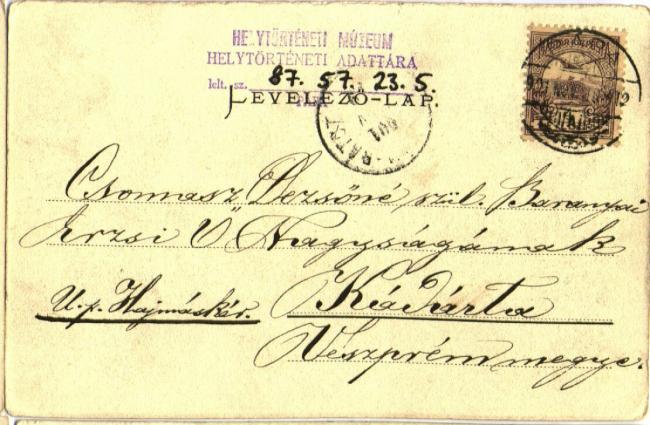 HELYTÖRTÉNETI MÚZEUM
HELYTÖRTÉNETI ADATTÁRA
lelt. sz. 87. 57. 23. 5.
LEVELEZŐ-LAP.
Csomasz Dezsőné szül. Baranyai
Erzsi Ő Nagyságának
U. p. Hajmáskér. Kádárta
Veszprém megye.